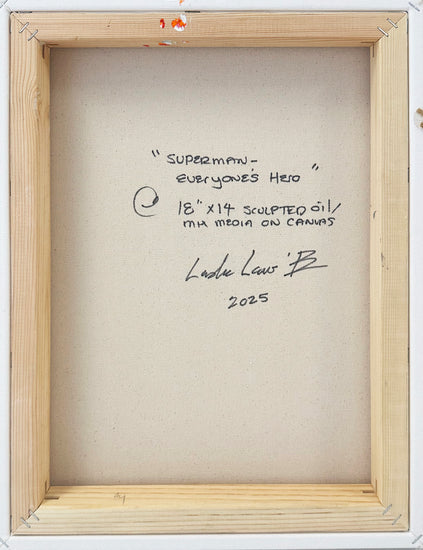 " SUPERMAN -
EVERYONE'S HERO "
18" x 14 SCULPTED oil/
MIX MEDIA ON CANVAS
Leslie Lewis 'B
2025